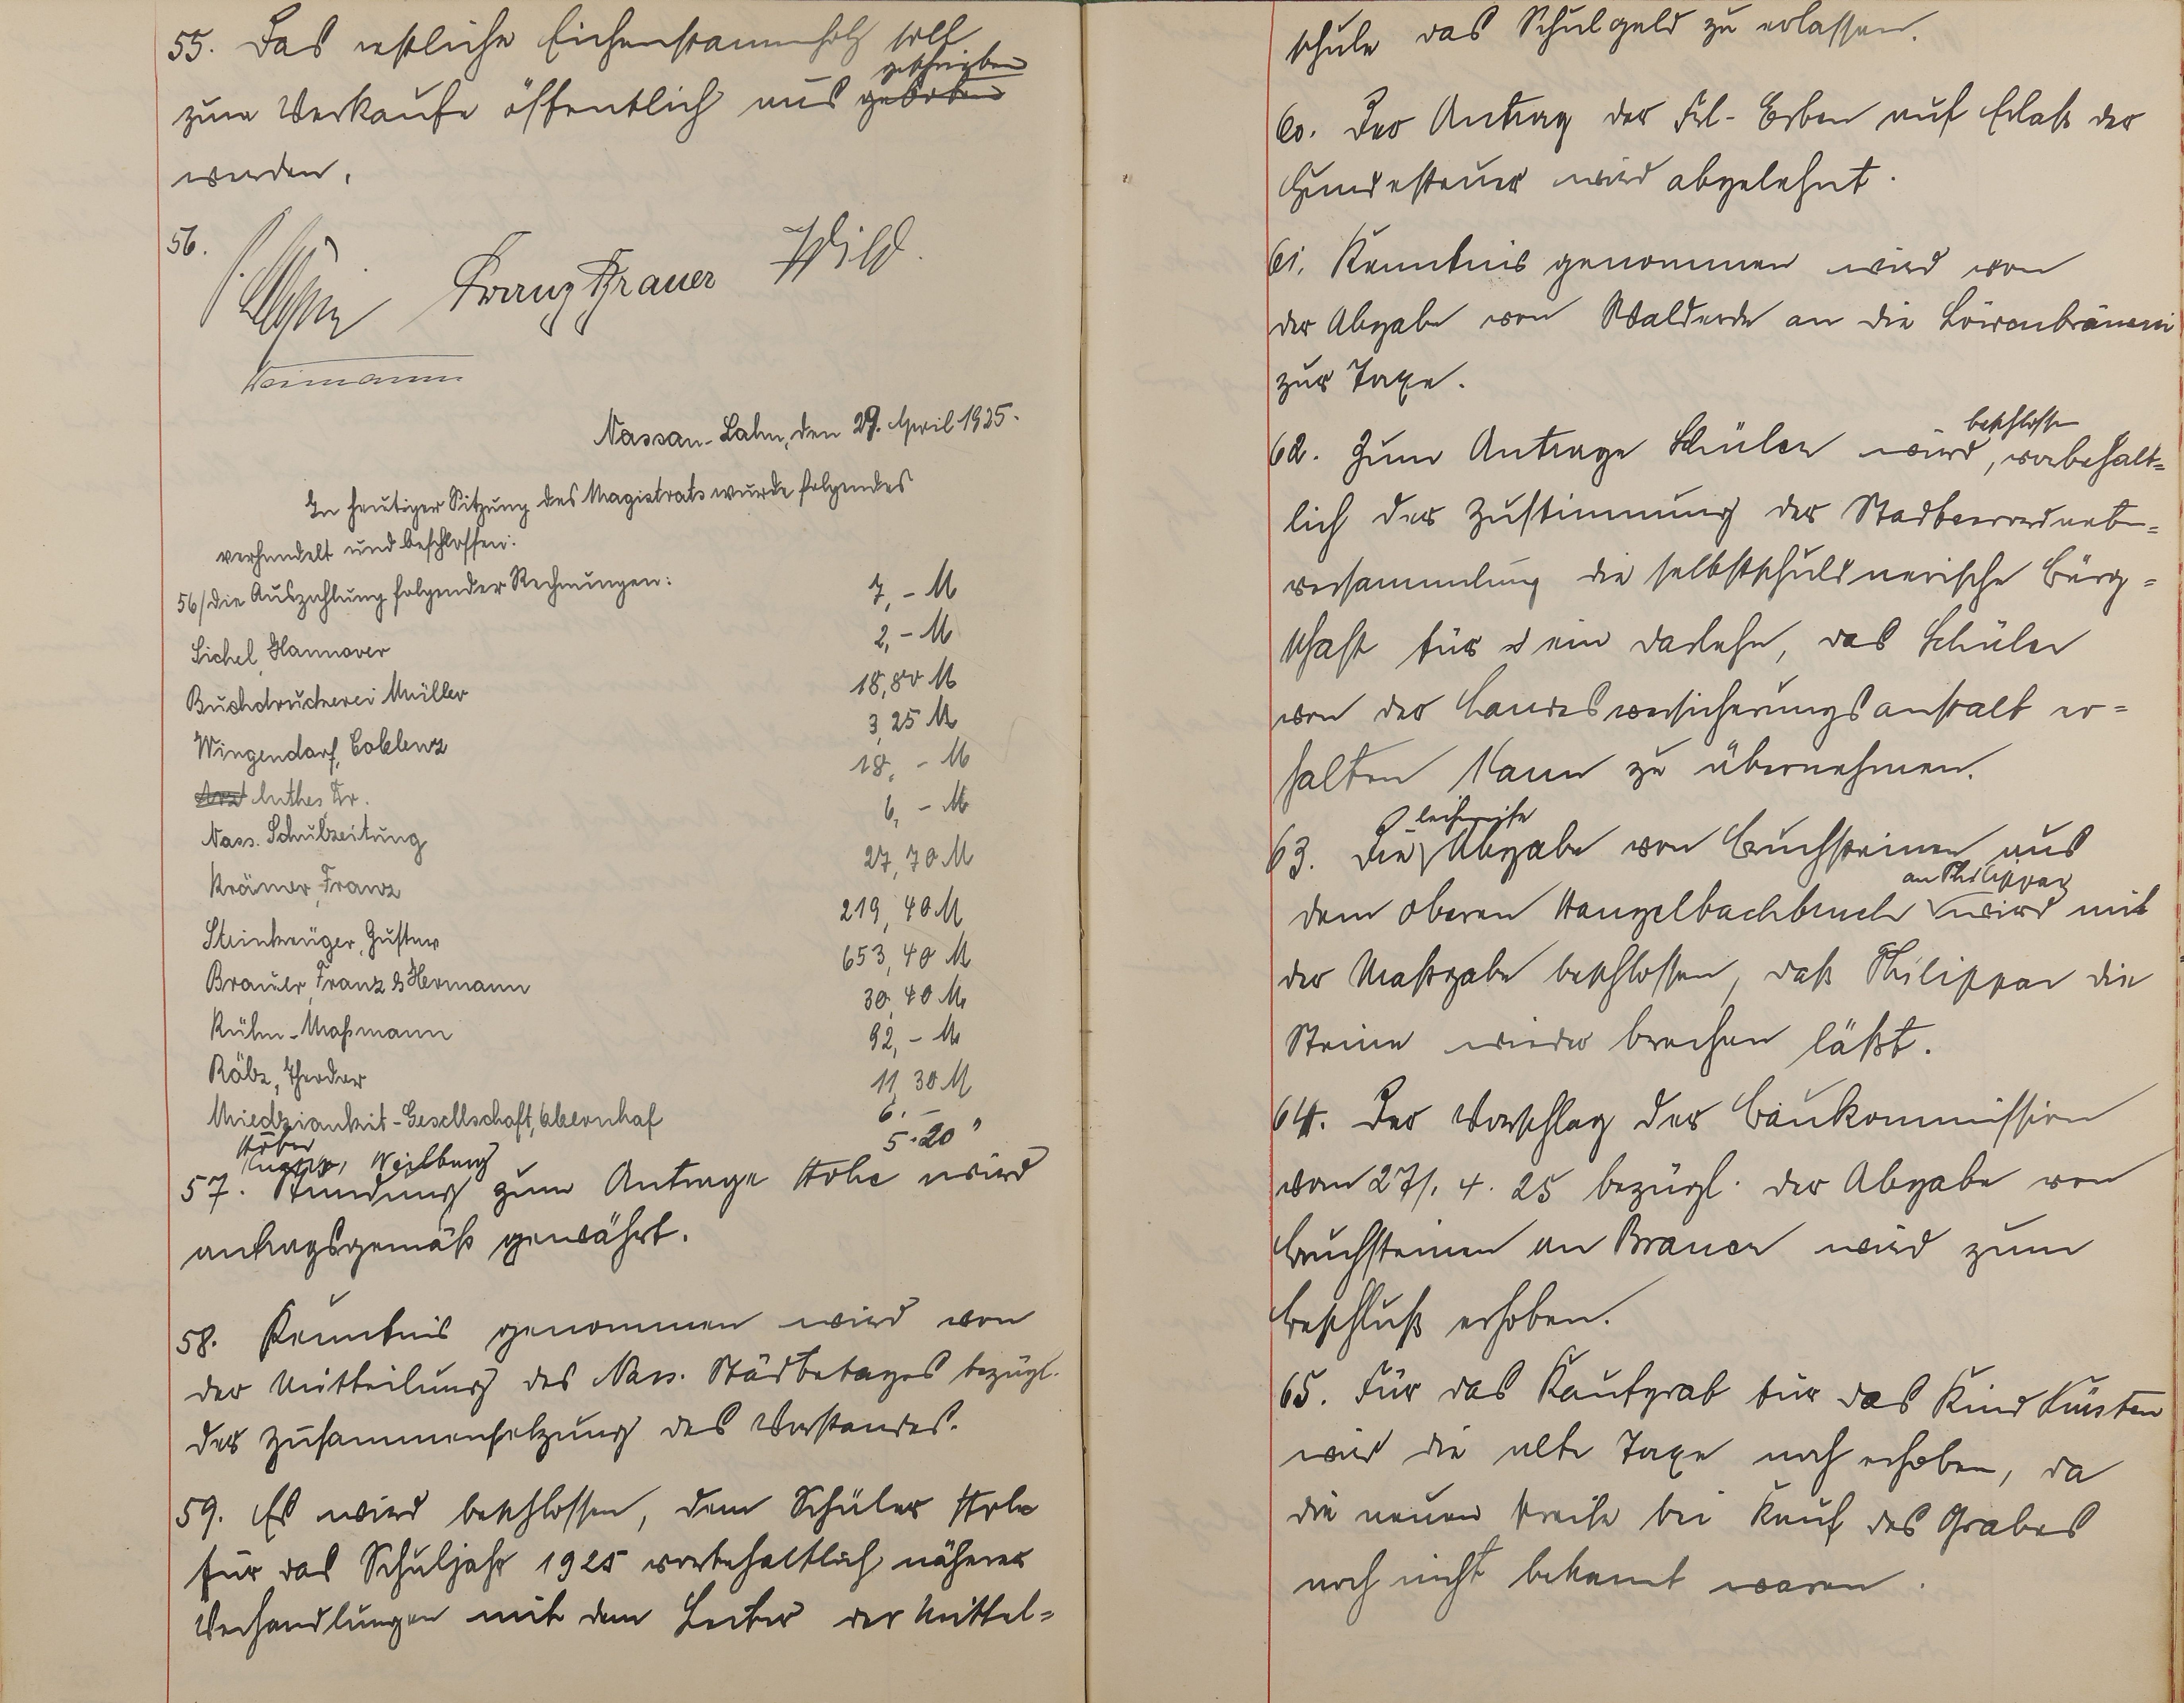 55. Das restliche Eichenstammholz soll
zum Verkaufe öffentlich aus geschrieben geboten
werden.
56.
Franz Brauer Wild.
Heimann
Nassau-Lahn, den 29. April 1925.
In heutiger Sitzung des Magistrats wurde folgendes
verhandelt und beschlossen:
56/ die Auszahlung folgender Rechnungen:
Sichel, Hannover 7,- M
Buchdruckerei Müller 2,- M
Wingendorf, Coblenz 18,80 M
Luthes Fr. 3,25 M
Nass. Schulzeitung 18,- M
Krämer, Franz 6,- M
Steinkrüger, Gustav 27,70 M
Brauer, Franz & Hermann 219,40 M
Kühn-Maßmann 653,40 M
Röbe, Theodor 30,40 M
Miedziankit-Gesellschaft, Obernhof 92,- M
11,30 M
6.-
Weilburg 5.20 "
57. Stundung zum Antrage Stobe wird
antragsgemäß gewährt.
58. Kenntnis genommen wird von
der Mitteilung des Nass. Städtetages bezügl.
der Zusammensetzung des Vorstandes.
59. Es wird beschlossen, dem Schüler Stobe
für das Schuljahr 1925 vorbehaltlich näherer
Verhandlungen mit dem Leiter der Mittel=
schule das Schulgeld zu erlassen.
60. Der Antrag der Frl. Erben auf Erlaß der
Hundesteuer wird abgelehnt.
61. Kenntnis genommen wird von
der Abgabe von Walderde an die Löwenbrauerei
zur Taxe.
62. Zum Antrage Schüler wird beschlossen, vorbehalt=
lich der Zustimmung der Stadtverordneten=
versammlung die selbstschuldnerische Bürg=
schaft für ein Darlehn, das Schüler
von der Landesversicherungsanstalt er=
halten kann zu übernehmen.
63. Die leihweise Abgabe von Bruchsteinen aus
dem oberen Hangelbachbruch an Philippar wird mit
der Maßgabe beschlossen, daß Philippar die
Steine wieder brechen läßt.
64. Der Vorschlag der Baukommission
vom 27/. 4. 25 bezügl. der Abgabe von
Bruchsteinen an Brauer wird zum
Beschluß erhoben.
65. Für das Kaufgrab für das Kind Küsten
wird die alte Taxe noch erhoben, da
die neuen Preise bei Kauf des Grabes
noch nicht bekannt waren.